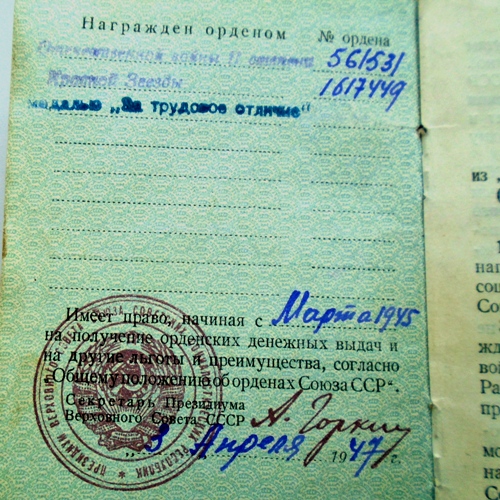 Награжден орденом № ордена
Отечественной войны II степени 561531
Красной Звезды 1617449
медалью „За трудовое отличие"
Имеет право, начиная с Марта 1945
на получение орденских денежных выдач и
на другие льготы и преимущества, согласно
„Общему положению об орденах Союза ССР“.
Секретарь Президиума
Верховного Совета СССР А. Горкин
„3 Апреля 1947 г.
из